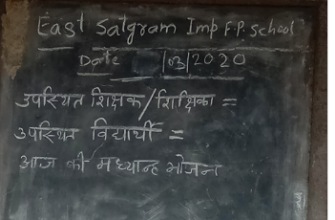 East Satgram Imp F.P. School
Date /03/2020
उपस्थित शिक्षक/शिक्षिका =
उपस्थित विद्यार्थी =
आज की मध्यान्ह भोजन